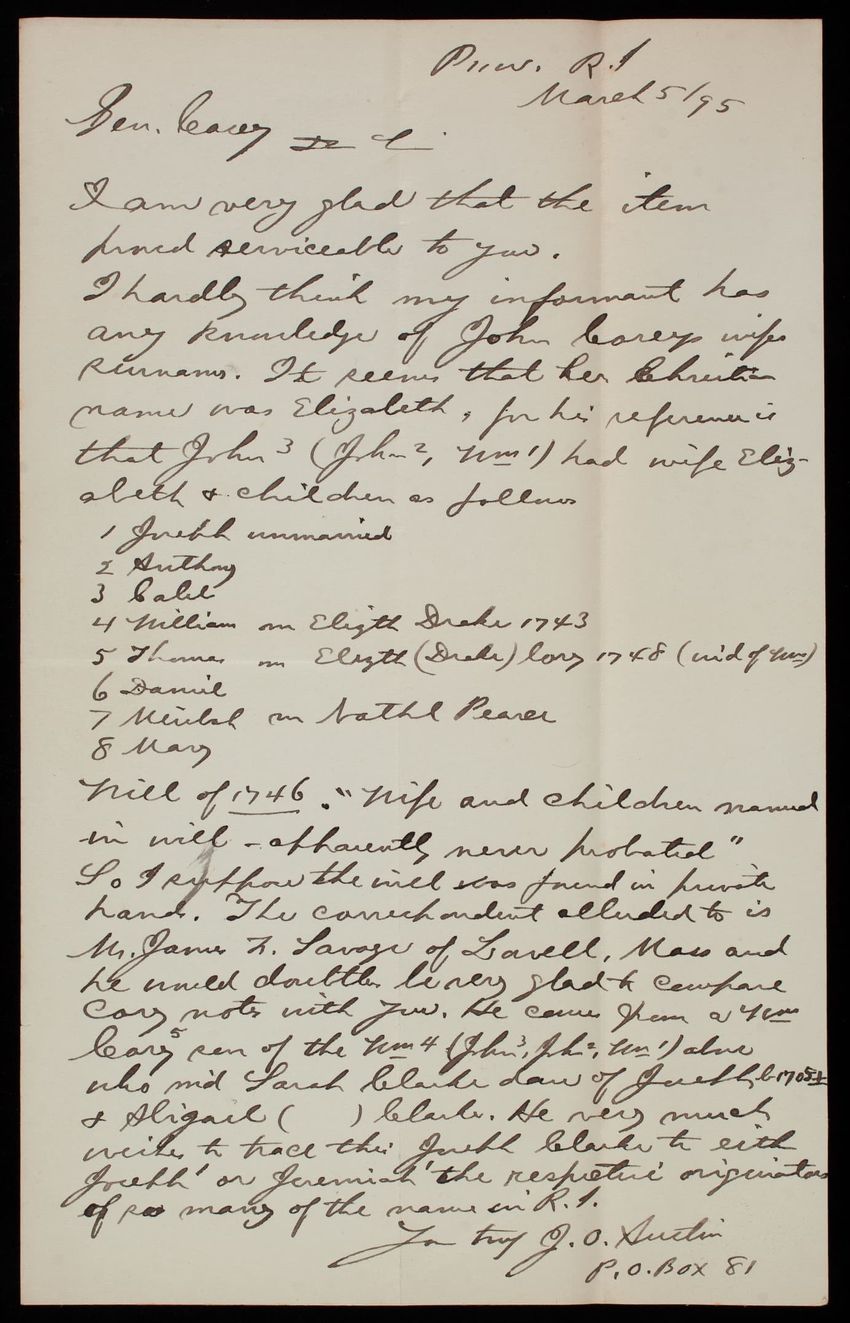 Prov. R. I
March 5/95
Gen. Casey
I am very glad that the item
proved serviceable to you.
I hardly think my informant has
any knowledge of John Coreys wifes
surname. It seems that her Christian
name was Elizabeth, for his reference is
that John 3 (John 2, Wm 1) had wife Eliz-
abeth & children as follows
1 Joseph unmarried
2 Anthony
3 Caleb
4 William m Elizth Drake 1743
5 Thomas m Elizth (Drake) Cory 1748 (wid of Wm)
6 Daniel
7 m Nathl Pearce
8 Mary
Will of 1746. "Wife and children named
in will - apparently never probated"
So I suppose the will was found in private
hands. The correspondent alluded to is
Mr. James F. Savage of Lowell, Mass and
he would doubtless be very glad to compare
Cory notes with you. He comes from a Wm
Cory 5 son of the Wm 4 (John 3, Jno 2, Wm 1) above
who md Sarah Clarke dau of Joseph b 1705±
& Abigail ( ) Clarke. He very much
wishes to trace this Joseph Clarke to either
Joseph 1 or Jeremiah 1 the respective originators
of so many of the name in R. I.
You truly J. O. Austin
P. O. Box 81